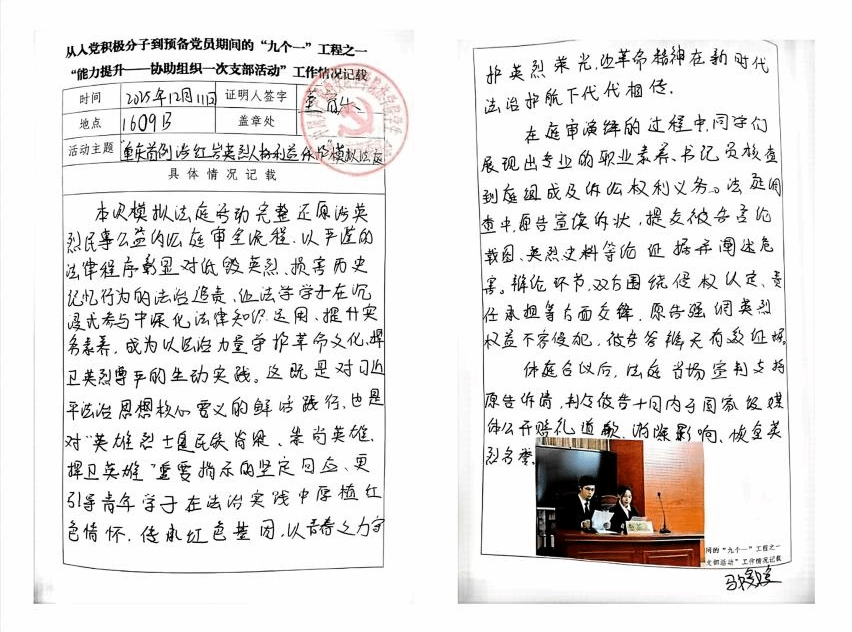 从入党积极分子到预备党员期间的“九个一”工程之一
“能力提升——协助组织一次支部活动”工作情况记载
时间 2025年12月11日 证明人签字
地点 1609B 盖章处
活动主题 "重庆首例涉红岩英烈人格利益保护"模拟法庭
具体情况记载
本次模拟法庭活动完整还原涉英
烈民事公益诉讼庭审全流程，以严谨的
法律程序彰显对诋毁英烈、损害历史
记忆行为的法治追责，让法学学子在沉
浸式参与中深化法律知识运用、提升实
务素养，成为以法治力量守护革命文化、捍
卫英烈尊严的生动实践。这既是对习近
平法治思想核心要义的鲜活践行，也是
对"英雄烈士是民族脊梁、崇尚英雄、
捍卫英雄"重要指示的坚定回应，更
引导青年学子在法治实践中厚植红
色情怀，传承红色基因，以青春之力守
护英烈荣光，让革命精神在新时代
法治护航下代代相传。
在庭审演绎的过程中，同学们
展现出专业的职业素养。书记员核查
到庭组成及诉讼权利义务。法庭调
查中，原告宣读诉状，提交被告言论
截图、英烈史料等论证据并阐述危
害。辩论环节，双方围绕侵权认定、责
任承担等方面交锋，原告强调英烈
权益不容侵犯，被告答辩无有效证据。
休庭合议后，法庭当场宣判支持
原告诉请，判令被告十日内于国家级媒
体公开赔礼道歉、消除影响、恢复英
烈名誉。
间的“九个一”工程之一
支部活动”工作情况记载